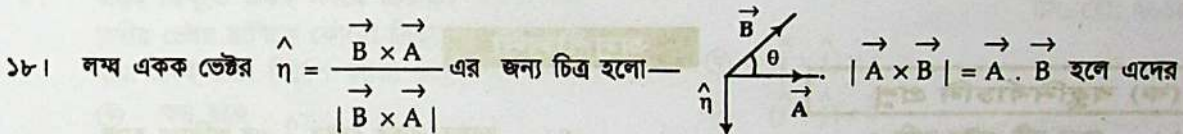 ১৮। লম্ব একক ভেক্টর η̂ = (B⃗ × A⃗) / |B⃗ × A⃗| এর জন্য চিত্র হলো— B⃗ θ A⃗ η̂ . |A⃗ × B⃗| = A⃗ . B⃗ হলে এদের